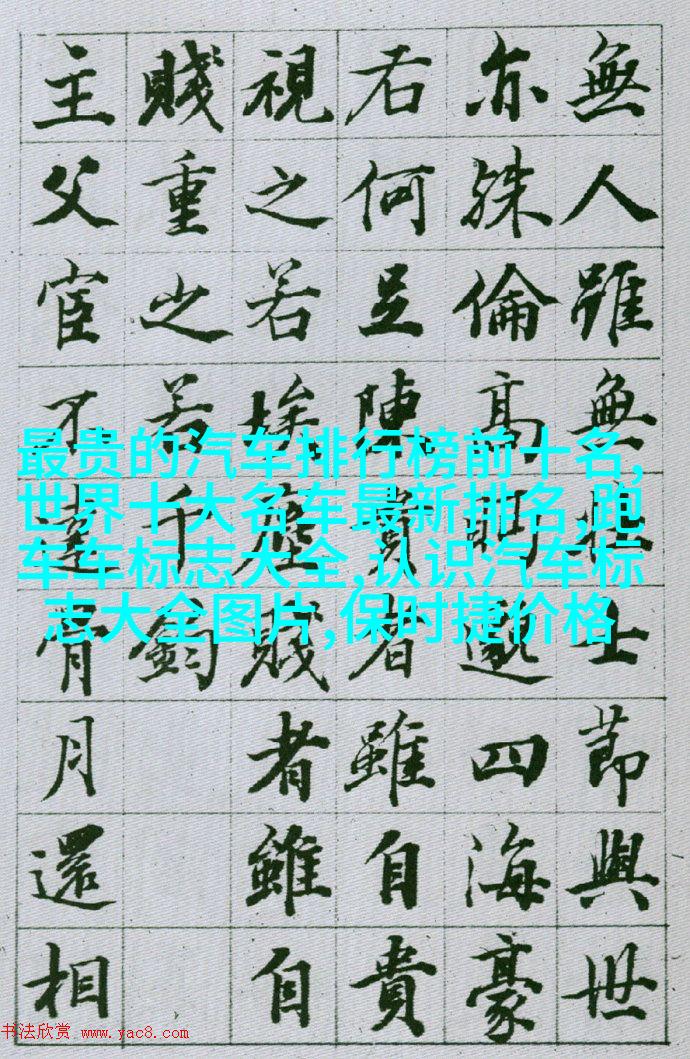 無人雖無壯士節與世
亦殊倫高眄邈四海豪
右何足陳貴者雖自貴
視之若埃塵賤者雖自
賤重之若千鈞
主父宦不達骨月還相
最贵的汽车排行榜前十名,
世界十大名车最新排名,跑
车车标志大全,认识汽车标
志大全图片,保时捷价格
书法欣赏 www.yac8.com